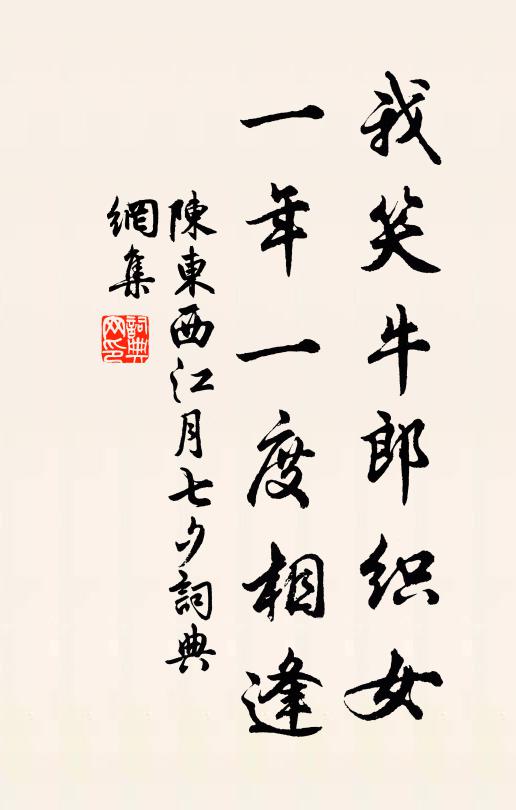 我笑牛郎织女
一年一度相逢
陳東西江月七夕詞典
網集
詞典
网印